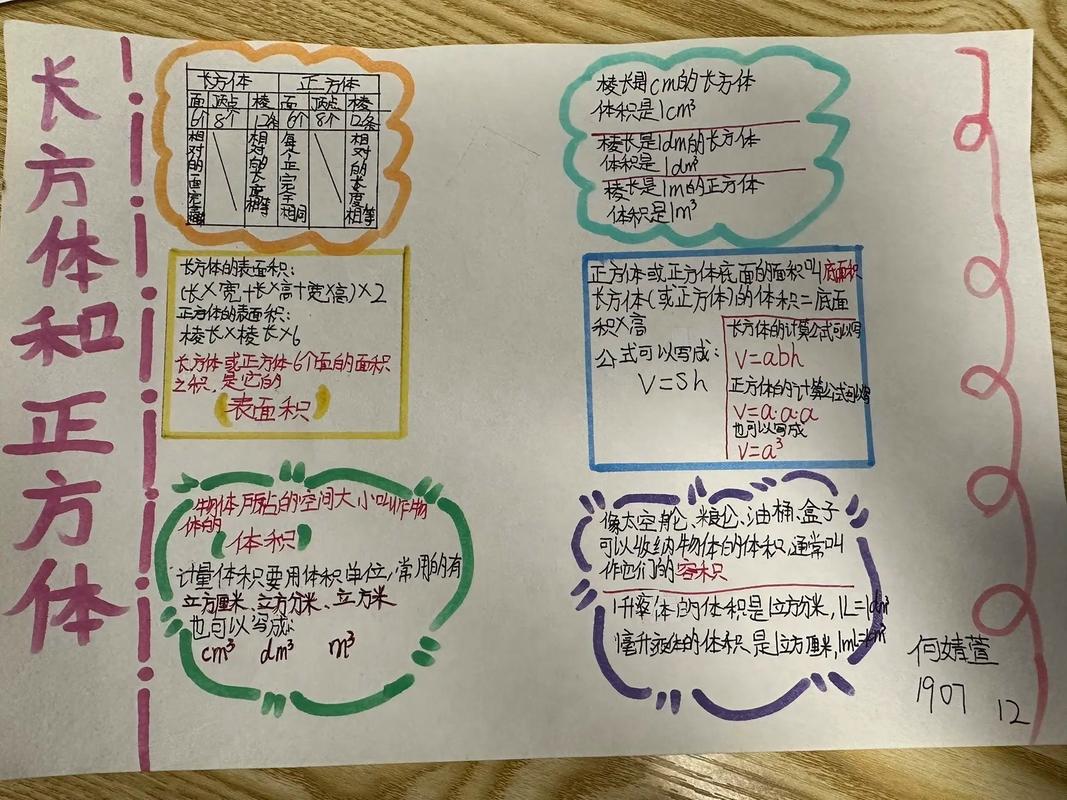 长方体和正方体
长方体 正方体
面 顶点 棱 面 顶点 棱
6个 8个 12条 6个 8个 12条
相对的面完全相同 相对的棱长度相等 每个正完全相同 相对的长度相等
长方体的表面积:
(长×宽+长×高+宽×高)×2
正方体的表面积:
棱长×棱长×6
长方体或正方体6个面的面积
之积,是它的
(表面积)
物体所占的空间大小叫作物
体的
(体积)
计量体积要用体积单位,常用的有
立方厘米、立方分米、立方米
也可以写成:
cm³ dm³ m³
棱长是1cm的长方体
体积是1cm³
棱长是1dm的长方体
体积是1dm³
棱长是1m的正方体
体积是1m³
正方体或正方体底面的面积叫底面积
长方体(或正方体)的体积=底面
积×高
公式可以写成:
V=Sh
长方体的计算公式可以写
V=abh
正方体的计算公式可以写
V=a·a·a
也可以写成
V=a³
像太空舱、粮仓、油桶、盒子
可以收纳物体的体积,通常叫
作它们的容积
1升液体的体积是1立方分米,1L=1dm³
1毫升液体的体积是1立方厘米,1mL=1cm³
何婧萱
1907
12